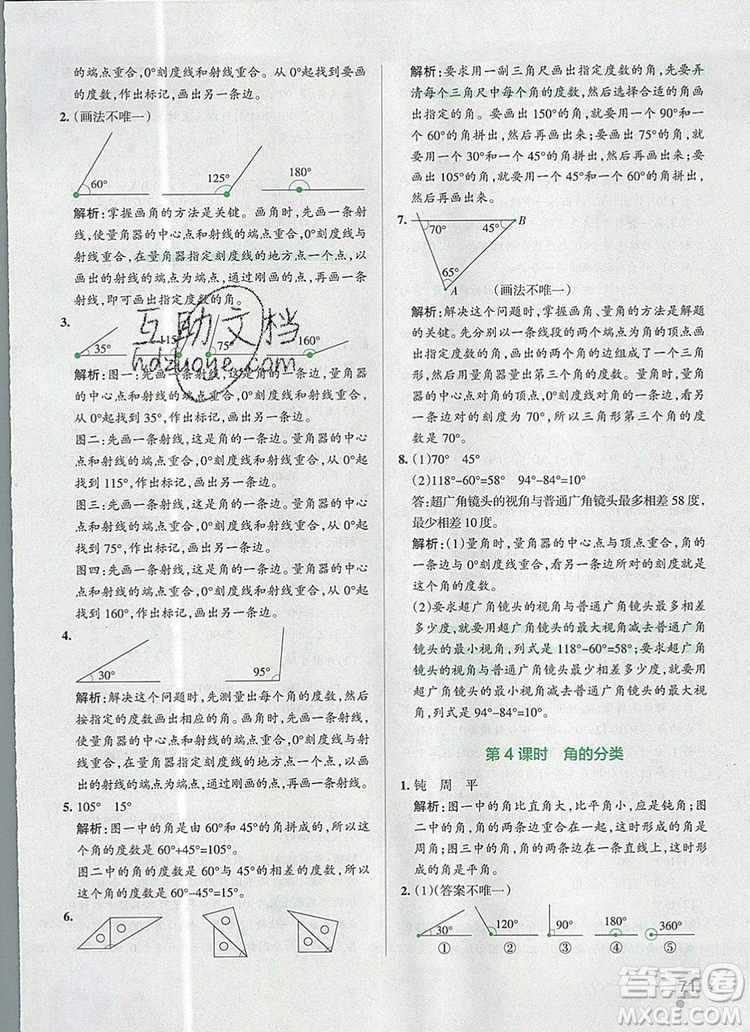 的端点重合,0°刻度线和射线重合。从0°起找到要画
的度数,作出标记,画出另一条边。
2. (画法不唯一)
60° 125° 180°
解析:掌握画角的方法是关键。画角时,先画一条射
线,使量角器的中心点和射线的端点重合,0°刻度线
与射线重合,在量角器指定刻度线的地方点一个点,
以画出的射线的端点为端点,通过刚画的点,再画一条
射线,即可画出指定度数的角。
3.
35° 115° 75° 160°
互助文档
hdzuoye.com
解析:图一:先画一条射线,这是角的一条边。量角器
的中心点和射线的端点重合,0°刻度线和射线重合。
从0°起找到35°,作出标记,画出另一条边。
图二:先画一条射线,这是角的一条边。量角器的中心
点和射线的端点重合,0°刻度线和射线重合。从0°起
找到115°,作出标记,画出另一条边。
图三:先画一条射线,这是角的一条边。量角器的中心
点和射线的端点重合,0°刻度线和射线重合。从0°起
找到75°,作出标记,画出另一条边。
图四:先画一条射线,这是角的一条边。量角器的中心
点和射线的端点重合,0°刻度线和射线重合。从0°起
找到160°,作出标记,画出另一条边。
4.
30° 95°
解析:解决这个问题时,先测量出每个角的度数,然后
按指定的度数画出相应的角。画角时,先画一条射线,
使量角器的中心点和射线的端点重合,0°刻度线和射
线重合。从0°起找到要画的度数,作出标记,画出另
一条边。
5. 105° 15°
解析:图一中的角是由60°和45°的角拼成的,所以这
个角的度数是60°+45°=105°。
图二中的角的度数是60°与45°的角的度数的差,所
以这个角的度数是60°-45°=15°。
6.
解析:要求用一副三角尺画出指定度数的角,先要弄
清每个三角尺中每个角的度数,然后选择合适的角画
出指定的角。要画出150°的角,就要用一个90°和一
个60°的角拼出,然后再画出来。要画出75°的角,就
要用一个30°和一个45°的角拼出,然后再画出来。
要画出105°的角,就要用一个60°和一个45°的角拼
出,然后再画出来。
7.
70° 45° B
65°
A (画法不唯一)
解析:解决这个问题时,掌握画角、量角的方法是解题
的关键。先分别以一条线段的两个端点为角的顶点,
画出两个角,两个角的边与已知的边组成了一个三角
形,然后用量角器量出第三个角的度数。量角器的中
心点对准角的顶点,0°刻度线对准角的一条边,看另
一条边对的刻度为70°,所以三角形第三个角的度
数为70°。
8. (1)70° 45°
(2)118°-60°=58° 94°-84°=10°
答:超广角镜头的视角与普通广角镜头最多相差58度,
最少相差10度。
解析:(1)量角时,量角器的中心点与顶点重合,量角
器的0°刻度线与角的一条边重合,看另一条边所对的
刻度是多少,就是这个角的度数。
(2)要求超广角镜头的视角与普通广角镜头最多相差
多少度,就要用超广角镜头的最大视角减去普通广角
镜头的最小视角,列式是118°-60°=58°;要求超广角
镜头的视角与普通广角镜头最少相差多少度,就要用
超广角镜头的最小视角减去普通广角镜头的最大视
角,列式是94°-84°=10°。
第4课时 角的分类
1. 钝 周 平
解析:图一中的角比直角大,比平角小,应是钝角;图
二中的角,角的两条边重合在一起,这时形成的角是
周角;图三中的角,角的两条边在一条直线上,这时形
成的角是平角。
2. (1)(答案不唯一)
30° 120° 90° 180° 360°
① ② ③ ④ ⑤
71
答案圈
MXQE.COM